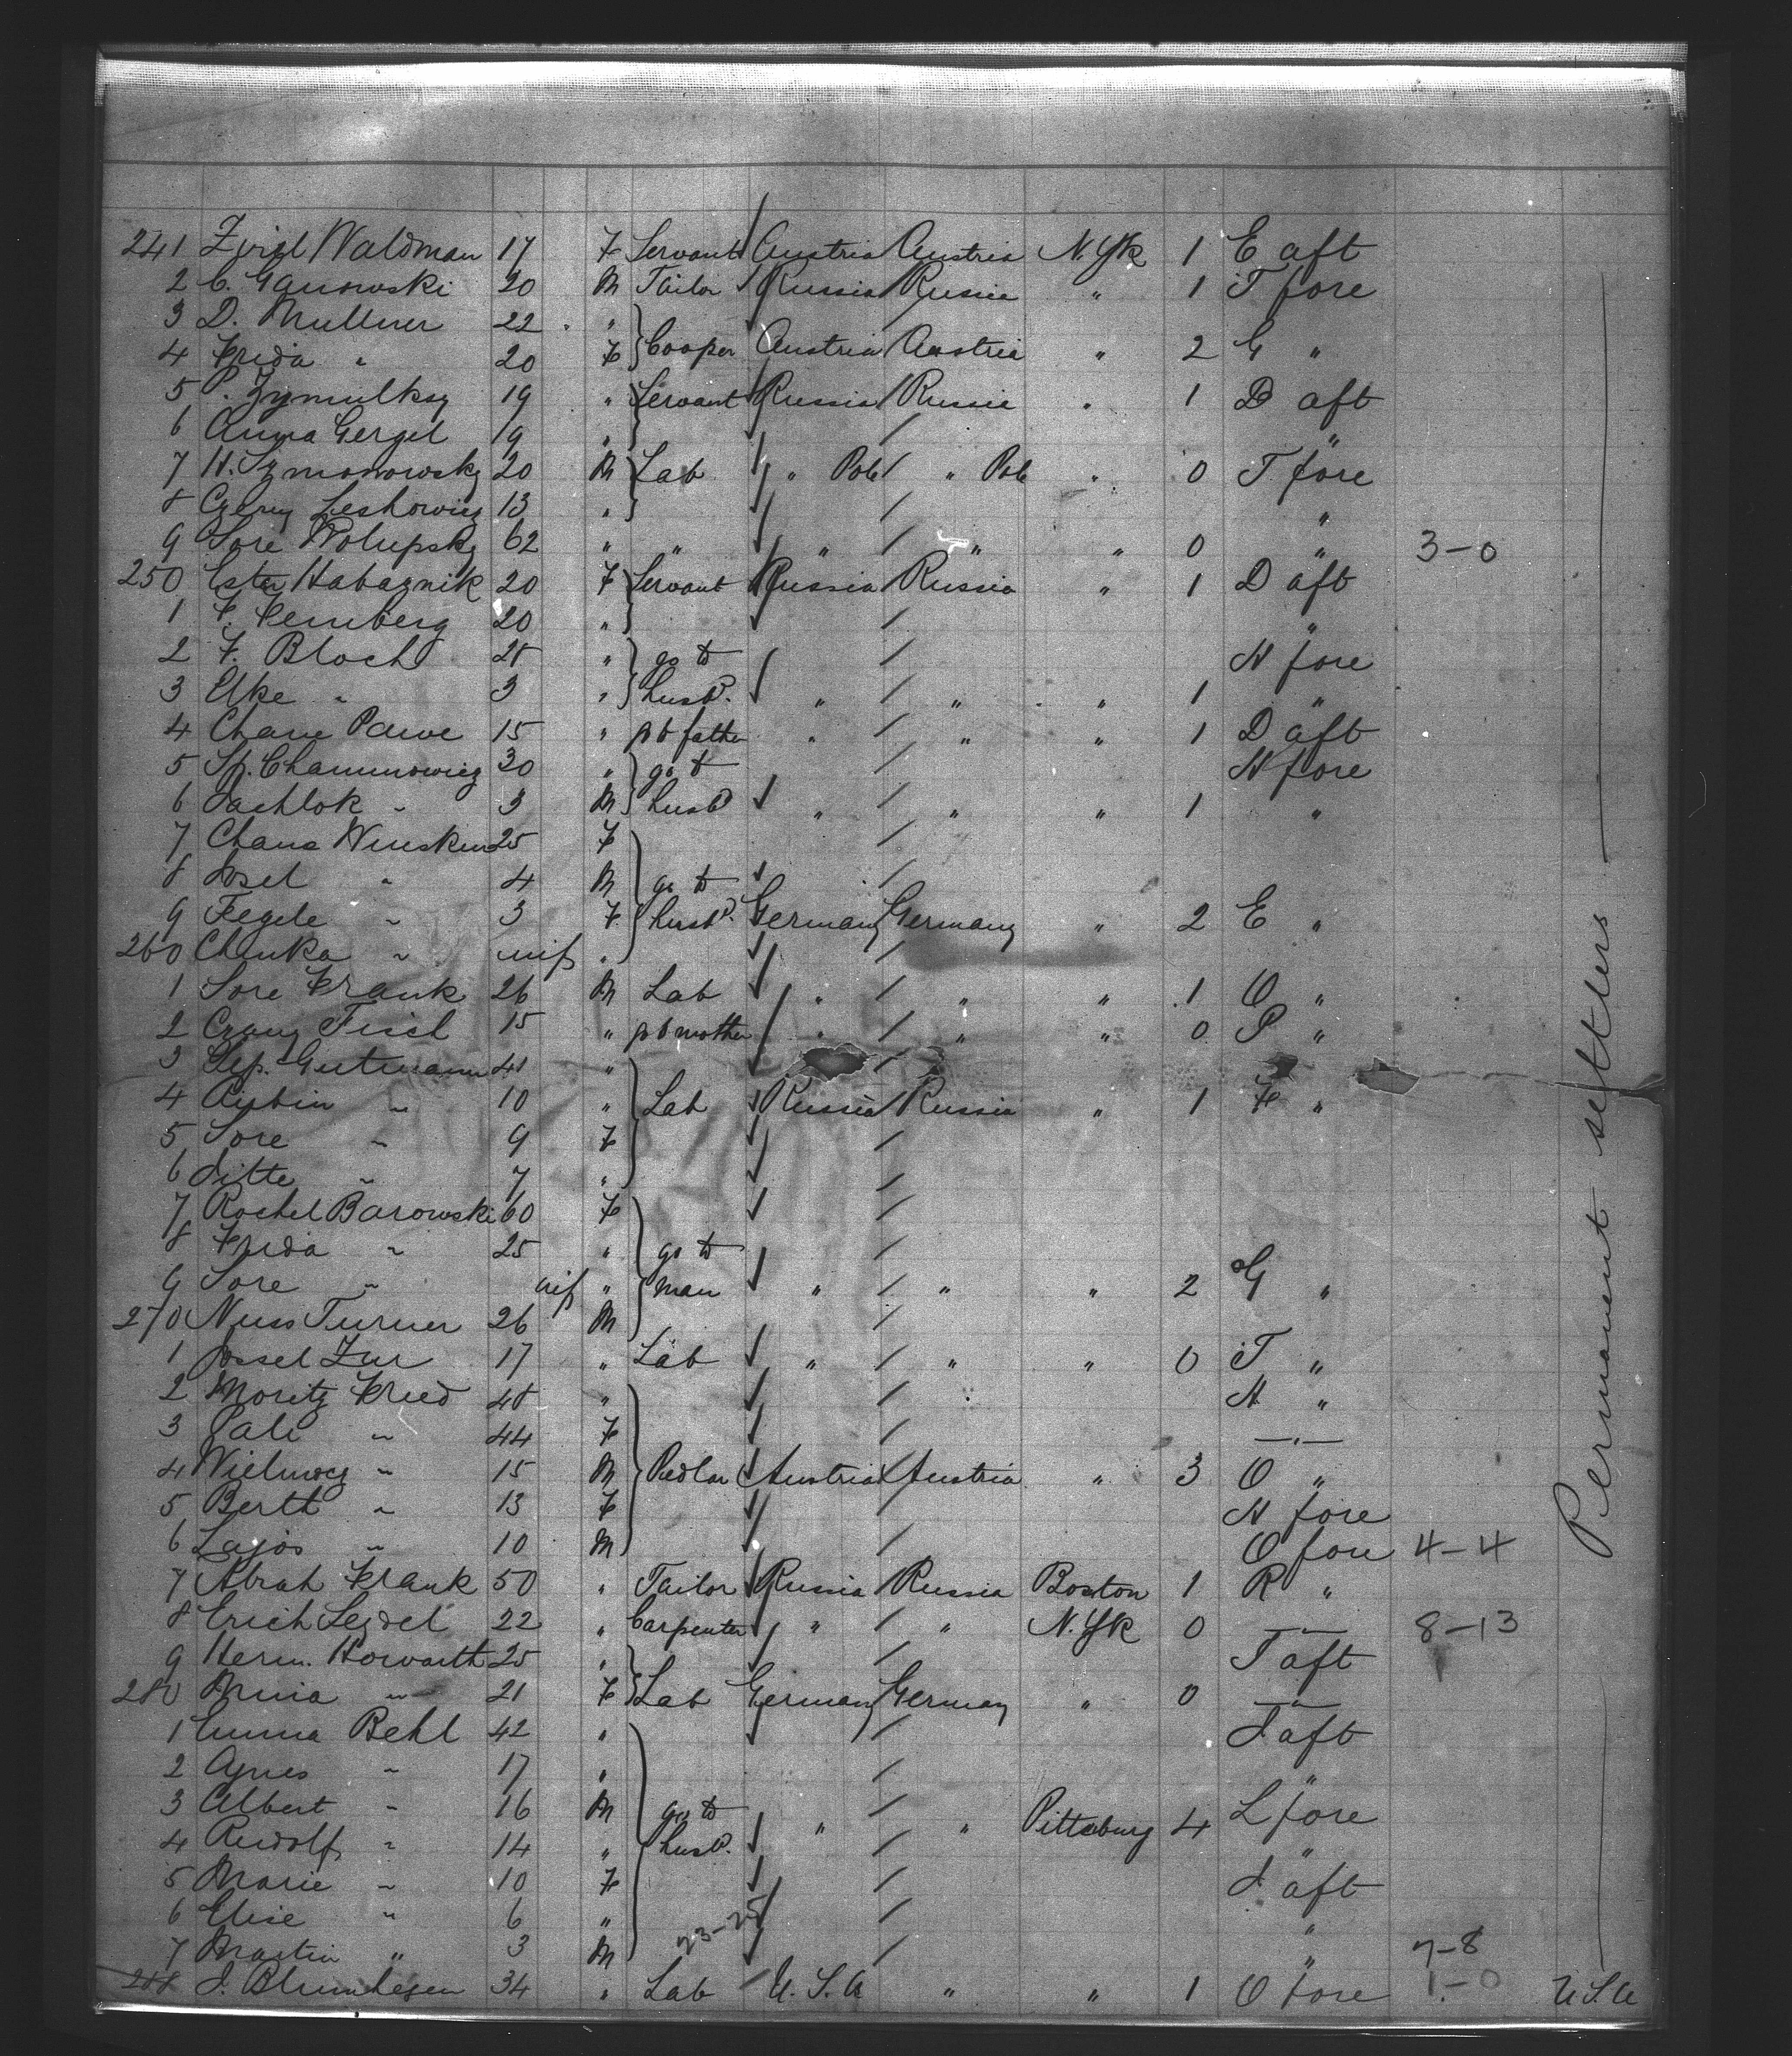 241 Zirel Waldman 17 F Servant Austria Austria N. Yk 1 E aft
2 C. Ganowski 20 M Tailor Russia Russia " 1 T fore
3 D. Mullner 22 "
4 Frida " 20 F Cooper Austria Austria " 2 G "
5 P. Zymulksy 19 " Servant Russia Russia " 1 D aft
6 Anna Gergel 19 " "
7 H. Szmonowsky 20 M Lab " Pole " Pole " 0 T fore
8 Czerny Leshowicz 13 " "
9 Sore Wolupsky 62 " " " " " 0 " 3-0
250 Ester Habaznik 20 F Servant Russia Russia " 1 D aft
1 F. Fernberg 20 " "
2 F. Bloch 28 " go to N fore
3 Elke " 3 " husbd. " " " 1 "
4 Chane Parve 15 " go to father " " " 1 D aft
5 Sp. Chammowicz 30 " go to N fore
6 " 3 M husbd " " " 1 "
7 Chana Winskin 25 F
8 Josel " 4 M go to
9 Fegele " 3 F husbd. Germany Germany " 2 E "
260 Chinka " inf "
1 Sore Frank 26 M Lab " " " 1 O "
2 Fisch 15 " go to mother " " " 0 P "
3 Gutmann 41 "
4 Rubin " 10 " Lab Russia Russia " 1 F "
5 Sore " 9 F
6 Sitte " 7 "
7 Rochel Barowski 60 F
8 Frida " 25 " go to
9 Sore " inf " man " " " 2 G "
270 Nuss Turner 26 M
1 Jossel Zur 17 " Lab " " " 0 T "
2 Moritz Fried 48 " N "
3 Pali " 44 F — " —
4 " 15 M Pedlar Austria Austria " 3 O "
5 Berth " 13 F N fore
6 Lajos " 10 M O fore 4-4
7 Abrah Frank 50 " Tailor Russia Russia Boston 1 R "
8 Erich Seydel 22 " Carpenter " " N. Yk 0 — " — 8-13
9 Herm. Horvarth 25 " T aft
280 Minia " 21 F Lab Germany Germany " 0 — " —
1 Emma Behl 42 " J aft
2 Agnes " 17 " "
3 Albert " 16 M go to " " Pittsburg 4 L fore
4 Rudolf " 14 " husbd. "
5 Marie " 10 F J aft
6 Elise " 6 " "
7 Martin " 3 M 23-25 " 7-8
288 J. Blumhegen 34 " Lab U. S. A " " 1 O fore 1-0 U.S.A
Permanent settlers